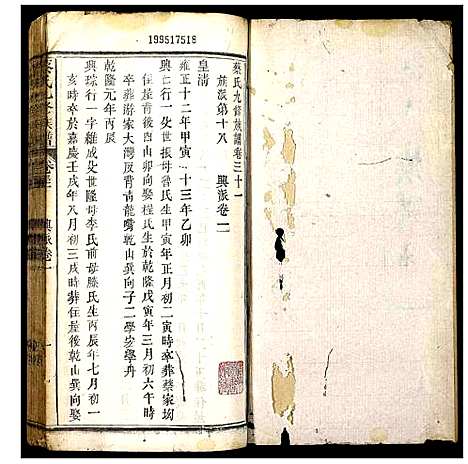 199517518
蔡氏九修族譜卷三十一
旗派第十八　興派卷一
皇清
雍正十二年甲寅　十三年乙卯
興七行一父世振母魯氏生甲寅年正月初二寅時卒葬蔡家坳
後乾山巽向娶程氏生於乾隆戊寅年三月初六午時
卒葬游家大灣反背青龍嘴乾山巽向子二學安學舟
乾隆元年丙辰
興琮行一字維成父世隆母李氏前母滕氏生丙辰年七月初一
亥時卒於嘉慶壬戌年八月初三戌時葬住屋後乾山巽向娶
蔡氏九修族譜
興派卷一